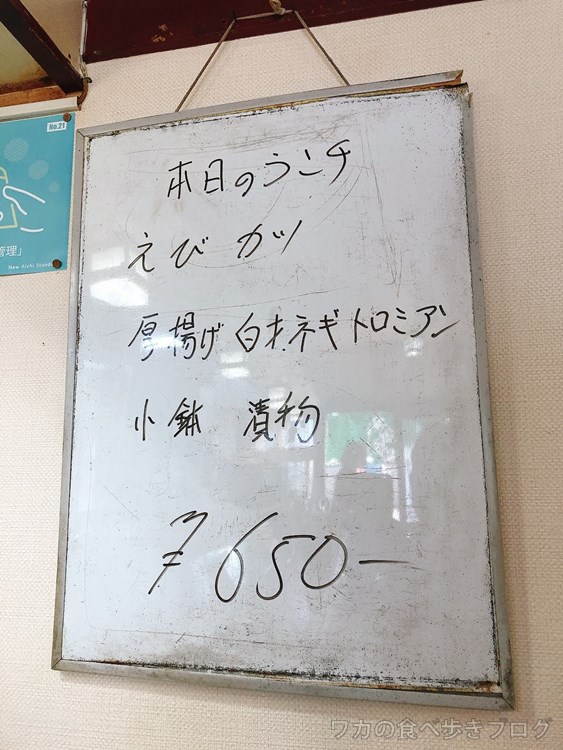 No.21
管理」
New Aichi Stand
本日のランチ
えび カツ
厚揚げ 白オネギトロミアン
小鉢 漬物
¥650-
ワカの食べ歩きブログ